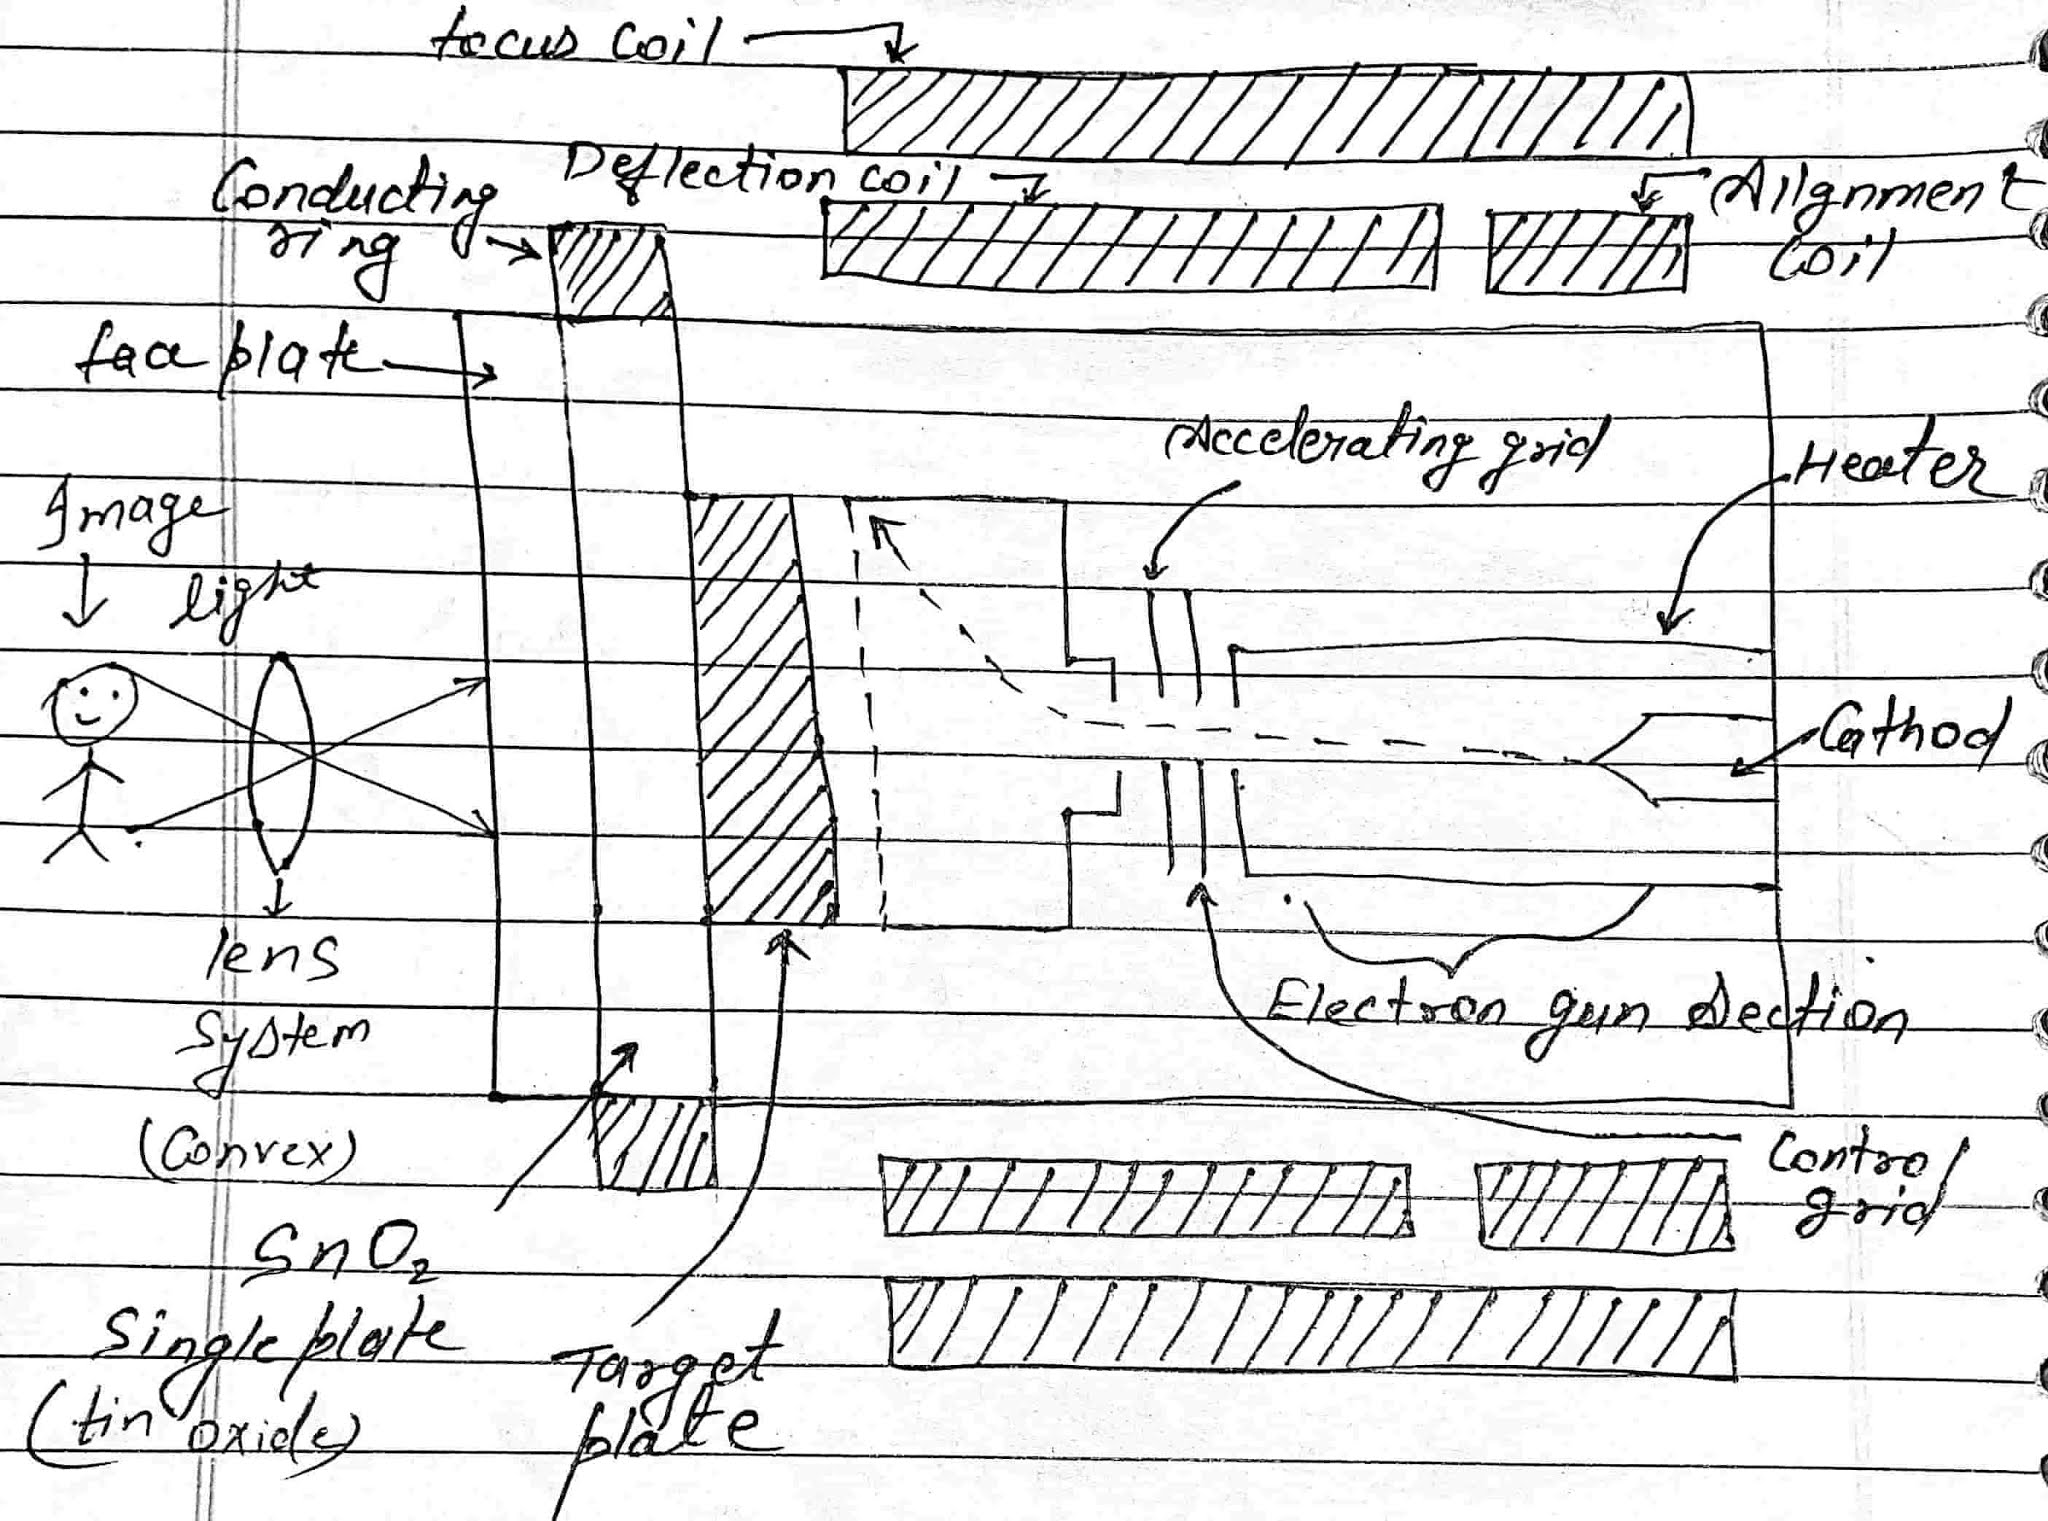 focus coil
Deflection coil
Conducting
ring
Ailgnment
coil
face plate
Accelerating grid
Heater
Image
light
Cathod
lens
system
(Convex)
Electron gun section
Control
grid
SnO₂
Single plate
(tin oxide)
Target
plate